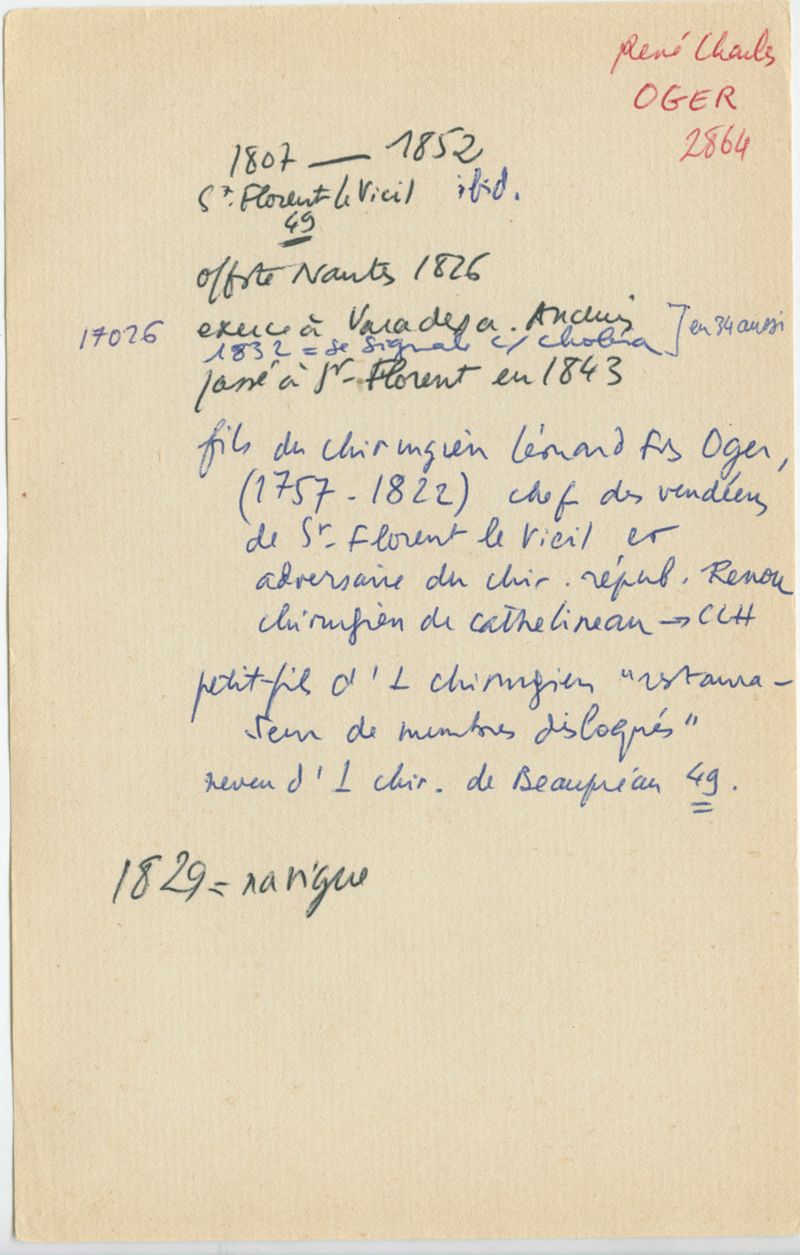 René Charles
OGER
2864
1807 — 1852
St. Florent le Vieil ibid.
49
offste Nantes 1826
17026 exerce à Varades, a. Ancenis ] en 34 aussi
1832 = se signale c/ choléra
passé à St-Florent en 1843
fils du chirurgien Léonard Frs Oger,
(1757 - 1822) chef des vendéens
de St-Florent le Vieil et
adversaire du chir. répub. Renou
chirurgien de Cathelineau → CLH
petit-fils d'1 chirurgien "restaura-
teur de membres disloqués"
neveu d'1 chir. de Beaupréau 49.
1829 = navigue